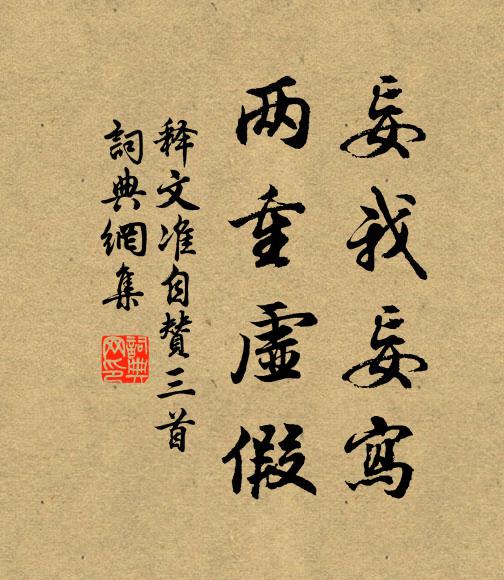 妄我妄寫
两重虛假
释文准自赞三首
詞典網集
詞典
网印